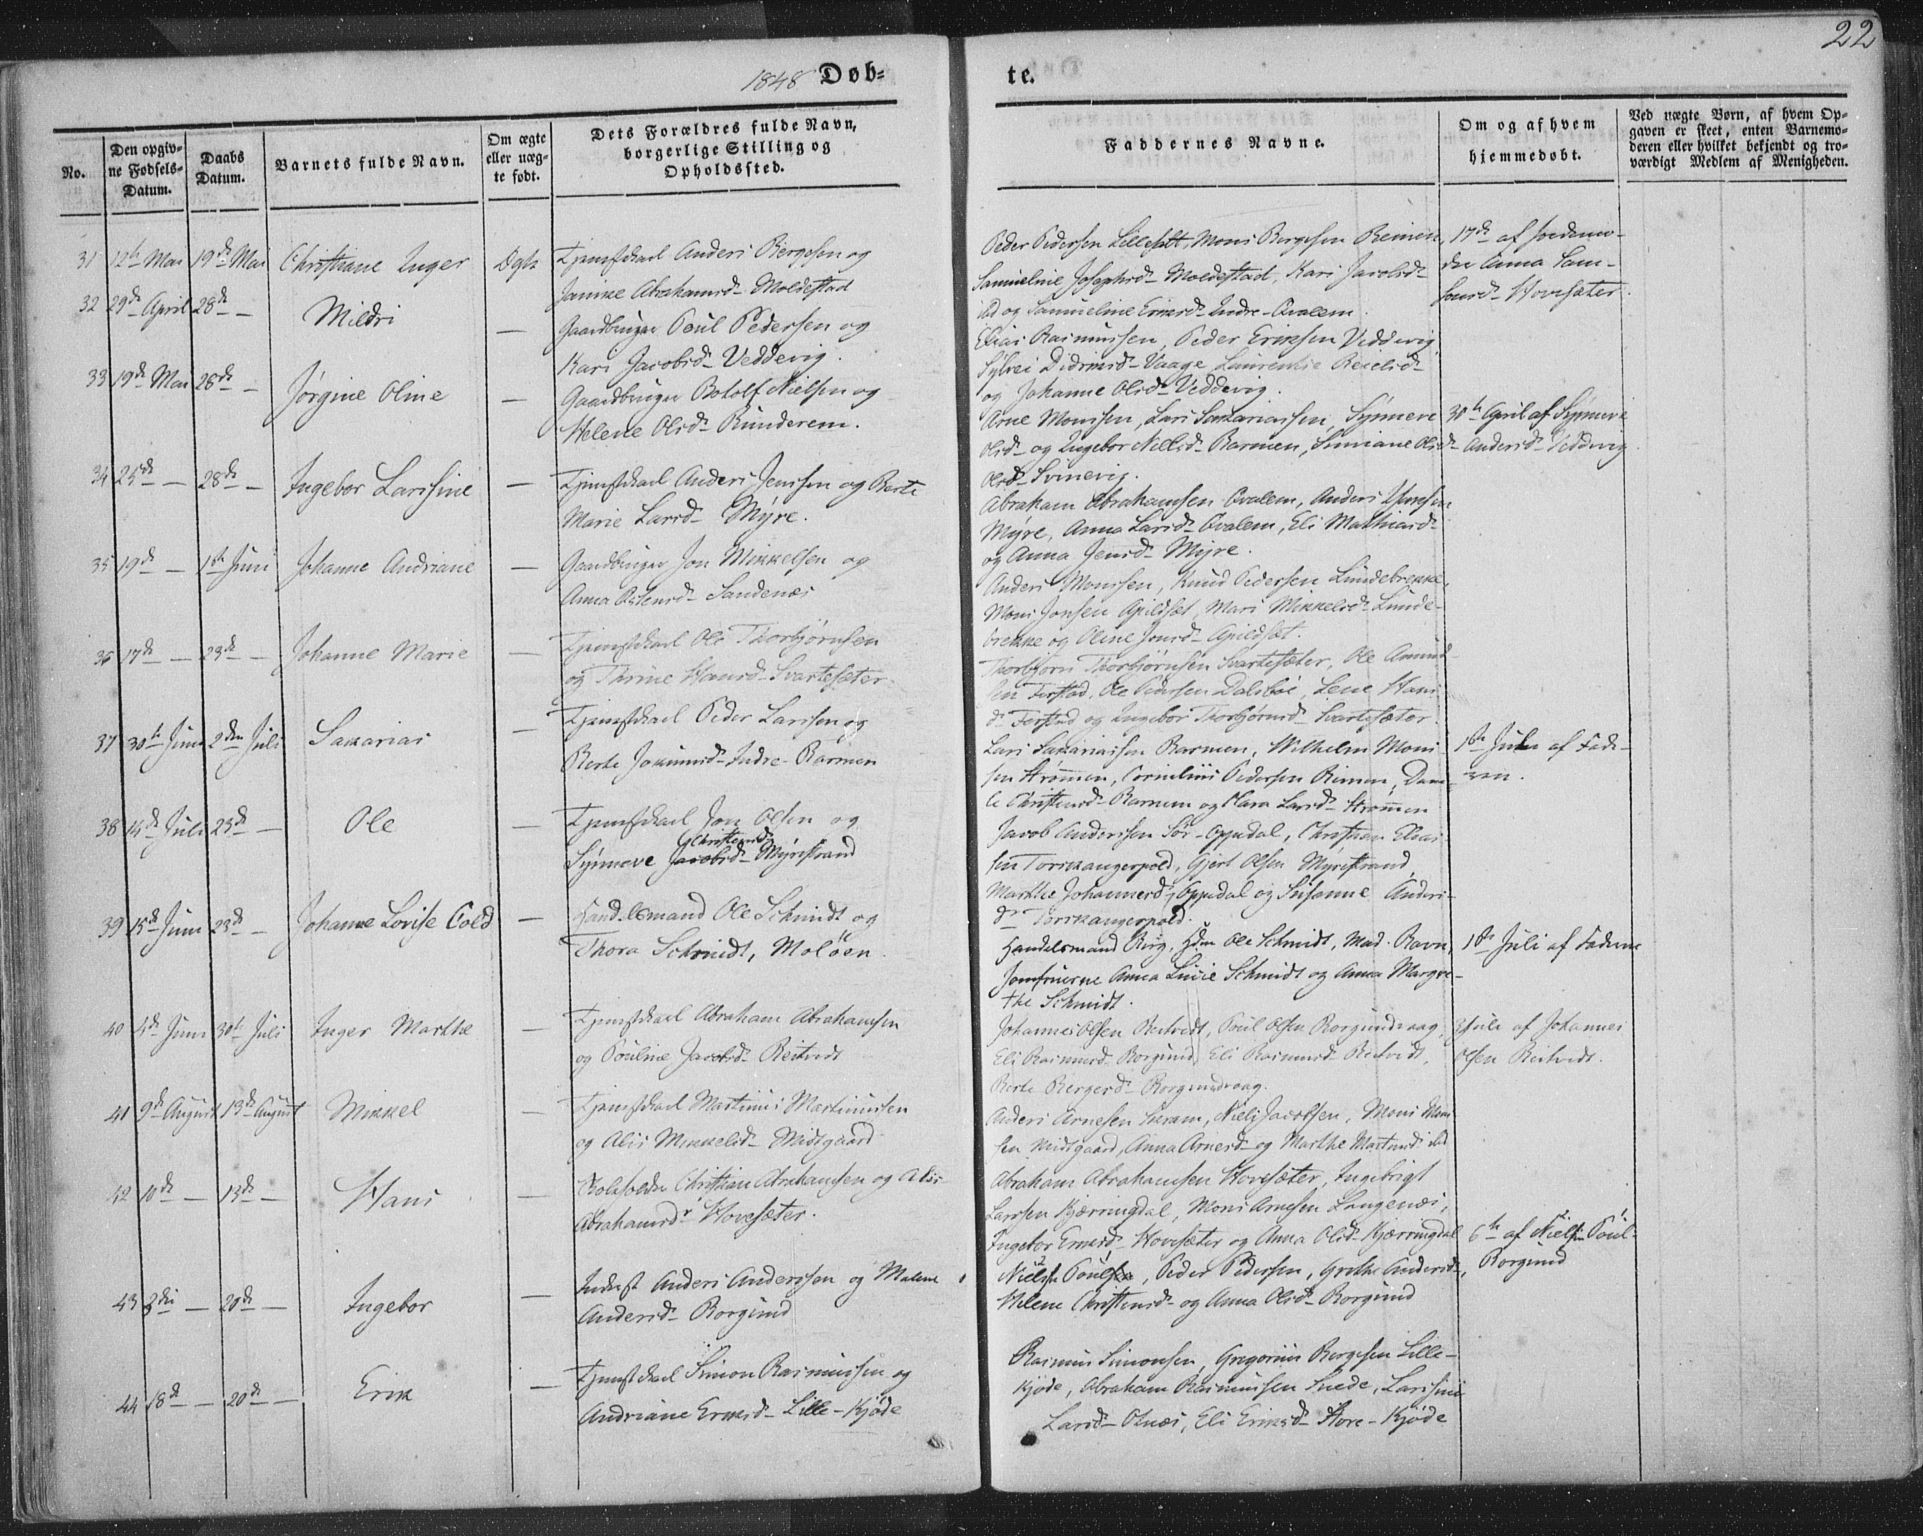 1848 Døb=
te.
22
No.
Den opgiv-
ne Fødsels-
Datum.
Daabs
Datum.
Barnets fulde Navn.
Om ægte
eller uæg-
te født.
Dets Forældres fulde Navn,
borgerlige Stilling og
Opholdssted.
Faddernes Navne.
Om og af hvem
hjemmedøbt.
Ved uægte Børn, af hvem Op-
gaven er skeet, enten Barnemo-
deren eller hvilket bekjendt og tro-
værdigt Medlem af Menigheden.
31 12te Mai 19de Mai Christiane Inger Ægte Tjenstkarl Anders Børgesen og
Janike Abrahamsd- Moldestad
Peder Pedersen Lillesæt, Mons Børgesen
Samueline Josephsd- Moldestad, Kari Jacobsd-
ibd og Samueline Ernsd- Indre-Qvalem.
17de af Jordemo-
der Anna Sam-
sonsd- Hovesæter.
32 29de April 28de - Mildri - Gaardbruger Poul Pedersen og
Kari Jacobsd- Veddevig.
Elias Rasmussen, Peder Eriksen Veddevig,
Sylvei Didriksd- Vaage
og Johanne Olsd- Veddevig.
33 19de Mai 28de - Jørgine Oline - Gaardbruger Botolf Nielsen og
Helene Olsd- Runderem.
Arne Monssen, Lars Sakariassen, Synneve
Olsd- og Ingebor Nielsd- Barmen, Olsd-
Olsd- Svinevig.
30te April af Synneve
Andersd- Veddevig.
34 25de - 28de - Ingebor Larsine - Tjenstkarl Anders Jenssen og Berte
Marie Larsd- Myre.
Abraham Abrahamsen Qvalem, Anders
Myre, Anna Larsd- Qvalem, Eli Mathiasd-
og Anna Jensd- Myre.
35 19de - 1ste Juni Johanne Andriane - Gaardbruger Jon Mikkelsen og
Anna Sandenæs
Anders Monssen, Knud Pedersen Lundebrekke,
Mons Jonsen Apildsæt, Mari Mikkelsd- Lunde-
brekke og Oline Jonsd- Apildsæt.
36 17de - 23de - Johanne Marie - Tjenstkarl Ole Thorbjørnsen
og Thrine Hansd- Svartesæter.
Thorbjørn Thorbjørnsen Svartesæter, Ole Amund-
sen Ferstad, Ole Pedersen Dalsbøe, Lene Hans-
d- Ferstad og Ingebor Thorbjørnsd- Svartesæter.
37 30te Juni 2den Juli Sakarias - Tjenstkarl Peder Larssen og
Berte Indre-Barmen
Lars Sakariassen Barmen, Wilhelm Mons-
sen Strømmen, Cornelius Pedersen Rimen,
Christensd- Barmen og Larsd- Strømmen
1ste Juli af Fade-
ren.
38 14de Juli 23de - Ole - Tjenstkarl Jon Olsen og
Christensd-
Synneve Jacobsd- Myrestrand
Jacob Anderssen Sør-Oppedal, Christian Elias-
sen Torskangerpold, Gjert Olsen Myrestrand,
Marthe Johannesd- Oppedal og Susanne Anders-
d- Torskangerpold.
39 15de Juni 23de - Johanne Lovise Cold - Handelsmand Ole Schmidt og
Thora Schmidt, Moløen.
Handelsmand Berg, Hdm. Ole Schmidt, Mad. Ravn,
Jomfruerne Anna Lucie Schmidt og Anna Margre-
the Schmidt.
1ste Juli af Faderen
40 4de Juni 30te Juli Inger Marthe - Tjenstkarl Abraham Abrahamsen
og Pouline Jacobsd- Refvedt
Johannes Olsen, Poul Olsen Borgundvaag,
Eli Rasmusd- Borgund, Eli Rasmusd-
Berte Børgesd- Borgundvaag.
Juli af Johannes
Olsen
41 9de August 13de August Mikkel - Tjenstkarl Martinus Martinussen
og Alis Mikkelsd- Midtgaard
Anders Arnesen, Niels Jacobsen, Mons Mons-
sen Midtgaard, Anna Arnesd- og Marthe Martinusd- ibd
42 10de - 13de - Hans - Christian Abrahamsen og Alis
Abrahamsdr Hovesæter.
Abraham Abrahamsen Hovesæter, Ingebrigt
Larssen Kjærringdal, Mons Arnesen Langenæs,
Ingebor Ernsd- Hovesæter og Anna Olsd- Kjærringdal
43 3die - 20de - Ingebor - Inderst Anders Anderssen og Malene
Andersd- Borgund
Niels Poulsen, Peder Pedersen, Grethe Andersd-,
Helene Christensd- og Anna Olsd- Borgund
6te af Niels Poul-
Borgund
44 18de - 20de - Erik - Tjenstkarl Simon Rasmussen og
Andriane Ernsd- Lille-Kjøde
Rasmus Simonsen, Gregorius Børgesen Lille-
Kjøde, Abraham Rasmussen, Larsine
Larsd- Osnæs, Eli Eriksd- Store-Kjøde